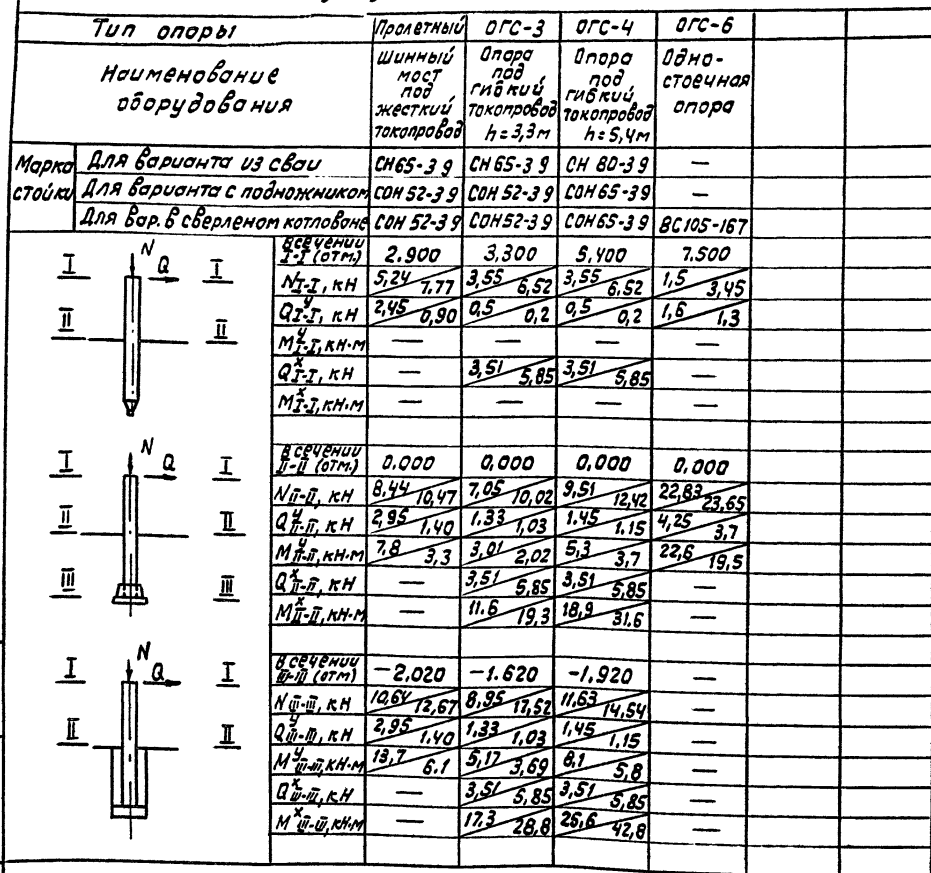 Тип опоры Пролетный ОГС-3 ОГС-4 ОГС-6
Наименование оборудования Шинный мост под жесткий токопровод Опора под гибкий токопровод h=3,3м Опора под гибкий токопровод h=5,4м Одно-стоечная опора
Марка стойки
Для варианта из сваи СН65-39 СН65-39 СН 80-39 —
Для варианта с подножником СОН 52-39 СОН 52-39 СОН65-39 —
Для вар. в сверленом котловане СОН 52-39 СОН52-39 СОН65-39 ВС105-167
В сечении I-I (отм.) 2.900 3,300 5,400 7.500
N I-I, кН 5,24 7.77 3,55 6,52 3,55 6.52 1,5 3,45
Q^y I-I, кН 2,45 0,90 0,5 0,2 0,5 0,2 1,6 1,3
M^y I-I, кН·м — — — —
Q^x I-I, кН — 3,51 5,85 3,51 5,85 —
M^x I-I, кН·м — — — —
В сечении II-II (отм.) 0.000 0,000 0,000 0,000
N II-II, кН 8,44 10,47 7,05 10,02 9,51 12,42 22,83 23,65
Q^y II-II, кН 2,95 1.40 1.33 1,03 1.45 1.15 4,25 3,7
M^y II-II, кН·м 7,8 3,3 3,01 2,02 5,3 3,7 22,6 19,5
Q^x II-II, кН — 3,51 5,85 3,51 5,85 —
M^x II-II, кН·м — 11.6 19,3 18,9 31,6 —
В сечении III-III (отм) -2,020 -1.620 -1,920 —
N III-III, кН 10,64 12,67 8,95 17,52 11,63 14,54 —
Q^y III-III, кН 2,95 1.40 1,33 1,03 1,45 1,15 —
M^y III-III, кН·м 13,7 6.1 5,17 3,69 8,1 5,8 —
Q^x III-III, кН — 3,51 5,85 3,51 5,85 —
M^x III-III, кН·м — 17,3 28,8 26,6 42,8 —
N
I Q I
II II
N
I Q I
II II
III III
N
I Q I
II II